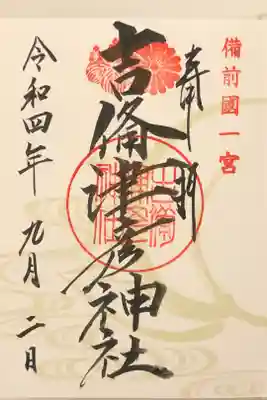 備前國一宮
奉拝
吉備津彦神社
令和四年 九月 二日